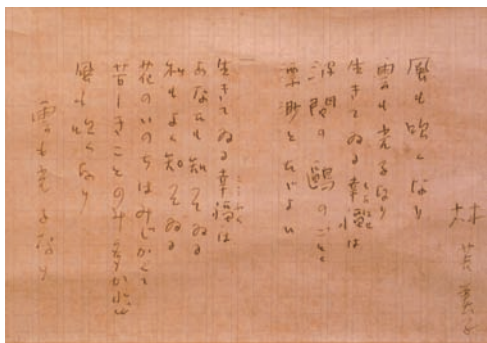 林芙美子
風も吹くなり
雲も光るなり
生きてゐる幸福は
波間の鷗のごとく
漂渺とたゞよい
生きてゐる幸福は
あなたも知ってゐる
私もよく知ってゐる
花のいのちはみじかくて
苦しきことのみ多かれど
風も吹くなり
雲も光るなり